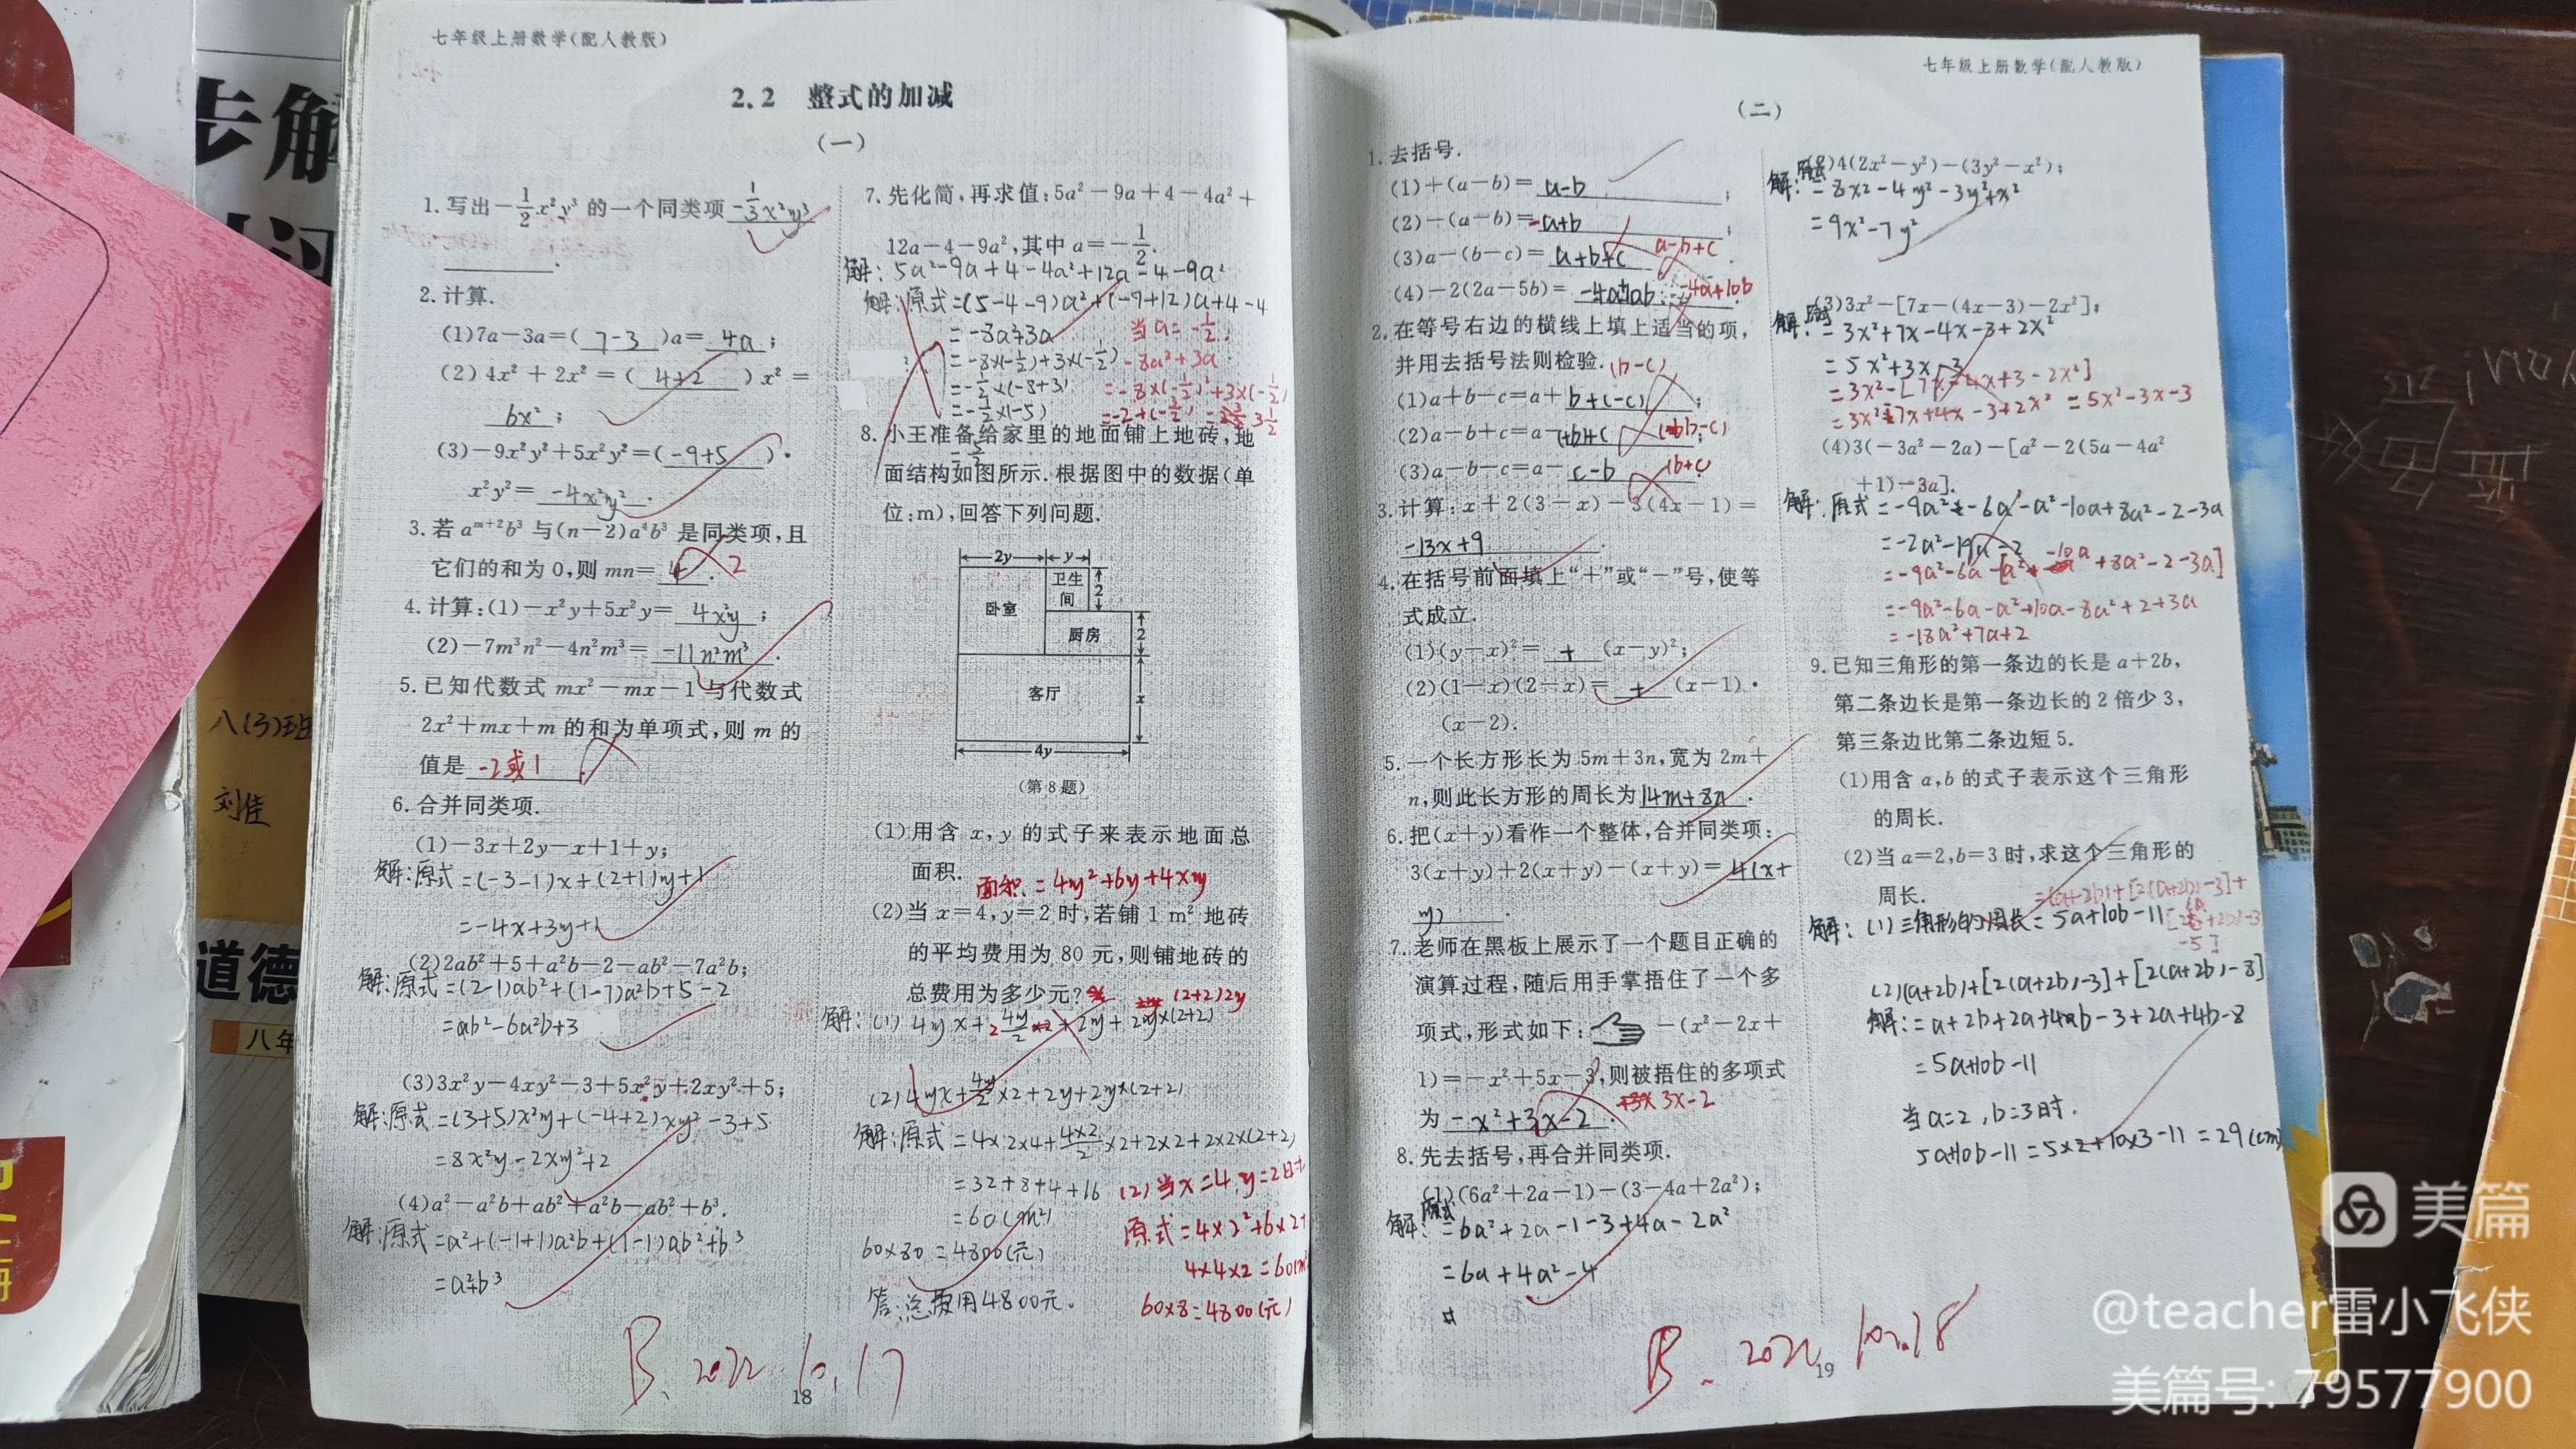 七年级上册数学(配人教版)
2.2 整式的加减
(一)
1.写出-1/2x²y³的一个同类项 -1/3x²y³
2.计算.
(1)7a-3a=( 7-3 )a= 4a ;
(2)4x²+2x²=( 4+2 )x²=
6x² ;
(3)-9x²y²+5x²y²=( -9+5 )·
x²y²= -4x²y² .
3.若aᵐ⁺²b³与(n-2)a⁴b³是同类项,且
它们的和为0,则mn= 4 . 2
4.计算:(1)-x²y+5x²y= 4x²y ;
(2)-7m³n²-4n²m³= -11n²m³ .
5.已知代数式mx²-mx-1与代数式
2x²+mx+m的和为单项式,则m的
值是 -2或1 .
6.合并同类项.
(1)-3x+2y-x+1+y;
解:原式=(-3-1)x+(2+1)y+1
=-4x+3y+1
(2)2ab²+5+a²b-2-ab²-7a²b;
解:原式=(2-1)ab²+(1-7)a²b+5-2
=ab²-6a²b+3
(3)3x²y-4xy²-3+5x²y+2xy²+5;
解:原式=(3+5)x²y+(-4+2)xy²-3+5
=8x²y-2xy²+2
(4)a²-a²b+ab²+a²b-ab²+b³.
解:原式=a²+(-1+1)a²b+(1-1)ab²+b³
=a²+b³
B. 2022.10.17
18
7.先化简,再求值:5a²-9a+4-4a²+
12a-4-9a²,其中a=-1/2.
解:5a²-9a+4-4a²+12a-4-9a²
解:原式=(5-4-9)a²+(-9+12)a+4-4
=-8a+3a 当a=-1/2,
=-8×(-1/2)+3×(-1/2) -8a²+3a
=-1/2×(-8+3) =-8×(-1/2)²+3×(-1/2)
=-1/2×(-5) =-2+(-3/2)
8.小王准备给家里的地面铺上地砖,地
面结构如图所示.根据图中的数据(单
位:m),回答下列问题.
2y y
卫生间 2
卧室
厨房 2
客厅 x
4y
(第8题)
(1)用含x,y的式子来表示地面总
面积. 面积.=4y²+6y+4xy
(2)当x=4,y=2时,若铺1 m²地砖
的平均费用为80元,则铺地砖的
总费用为多少元? (2+2)2y
解:(1)4yx+4y/2×2+2y+2y×(2+2)
(2)4yx+4y/2×2+2y+2y×(2+2)
解:原式=4×2×4+4×2/2×2+2×2+2×2×(2+2)
=32+8+4+16
=60(m²)
60×80=4800(元)
答:总费用4800元.
(2)当x=4,y=2时
原式=4×2²+6×2+
4×4×2=60(m²
60×8=4800(元)
七年级上册数学(配人教版)
(二)
1.去括号.
(1)+(a-b)= a-b ;
(2)-(a-b)= -a+b ;
(3)a-(b-c)= a+b+c . a-b+c
(4)-2(2a-5b)= -4a+ab . -4a+10b
2.在等号右边的横线上填上适当的项,
并用去括号法则检验. (b-c)
(1)a+b-c=a+ b+(-c) ;
(2)a-b+c=a- (+b)+c ; (b-c)
(3)a-b-c=a- c-b . (b+c)
3.计算:x+2(3-x)-3(4x-1)=
-13x+9 .
4.在括号前面填上“+”或“-”号,使等
式成立.
(1)(y-x)²= + (x-y)²;
(2)(1-x)(2-x)= + (x-1)·
(x-2).
5.一个长方形长为5m+3n,宽为2m+
n,则此长方形的周长为 14m+8n .
6.把(x+y)看作一个整体,合并同类项:
3(x+y)+2(x+y)-(x+y)= 4(x+
y) .
7.老师在黑板上展示了一个题目正确的
演算过程,随后用手掌捂住了一个多
项式,形式如下: -(x²-2x+
1)=-x²+5x-3,则被捂住的多项式
为 -x²+3x-2 . 3x-2
8.先去括号,再合并同类项.
(1)(6a²+2a-1)-(3-4a+2a²);
解:原式=6a²+2a-1-3+4a-2a²
=6a+4a²-4
B. 2022.10.18
19
(2)4(2x²-y²)-(3y²-x²);
解:=8x²-4y²-3y²+x²
=9x²-7y²
(3)3x²-[7x-(4x-3)-2x²];
解:=3x²+7x-4x-3+2x²
=5x²+3x-3
=3x²-[7x-4x+3-2x²]
=3x²-7x+4x-3+2x² =5x²-3x-3
(4)3(-3a²-2a)-[a²-2(5a-4a²
+1)-3a].
解:原式=-9a²-6a-a²-10a+8a²-2-3a
=-2a²-19a-2
=-9a²-6a-[a²-10a+8a²-2-3a]
=-9a²-6a-a²+10a-8a²+2+3a
=-18a²+7a+2
9.已知三角形的第一条边的长是a+2b,
第二条边长是第一条边长的2倍少3,
第三条边比第二条边短5.
(1)用含a,b的式子表示这个三角形
的周长.
(2)当a=2,b=3时,求这个三角形的
周长. =(a+2b)+[2(a+2b)-3]+
解:(1)三角形的周长=5a+10b-11
-5]
(2)(a+2b)+[2(a+2b)-3]+[2(a+2b)-8]
解:=a+2b+2a+4b-3+2a+4b-8
=5a+10b-11
当a=2,b=3时.
5a+10b-11=5×2+10×3-11=29(cm)
步解
八(3)班
刘佳
道德
八年
美篇
@teacher雷小飞侠
美篇号: 79577900